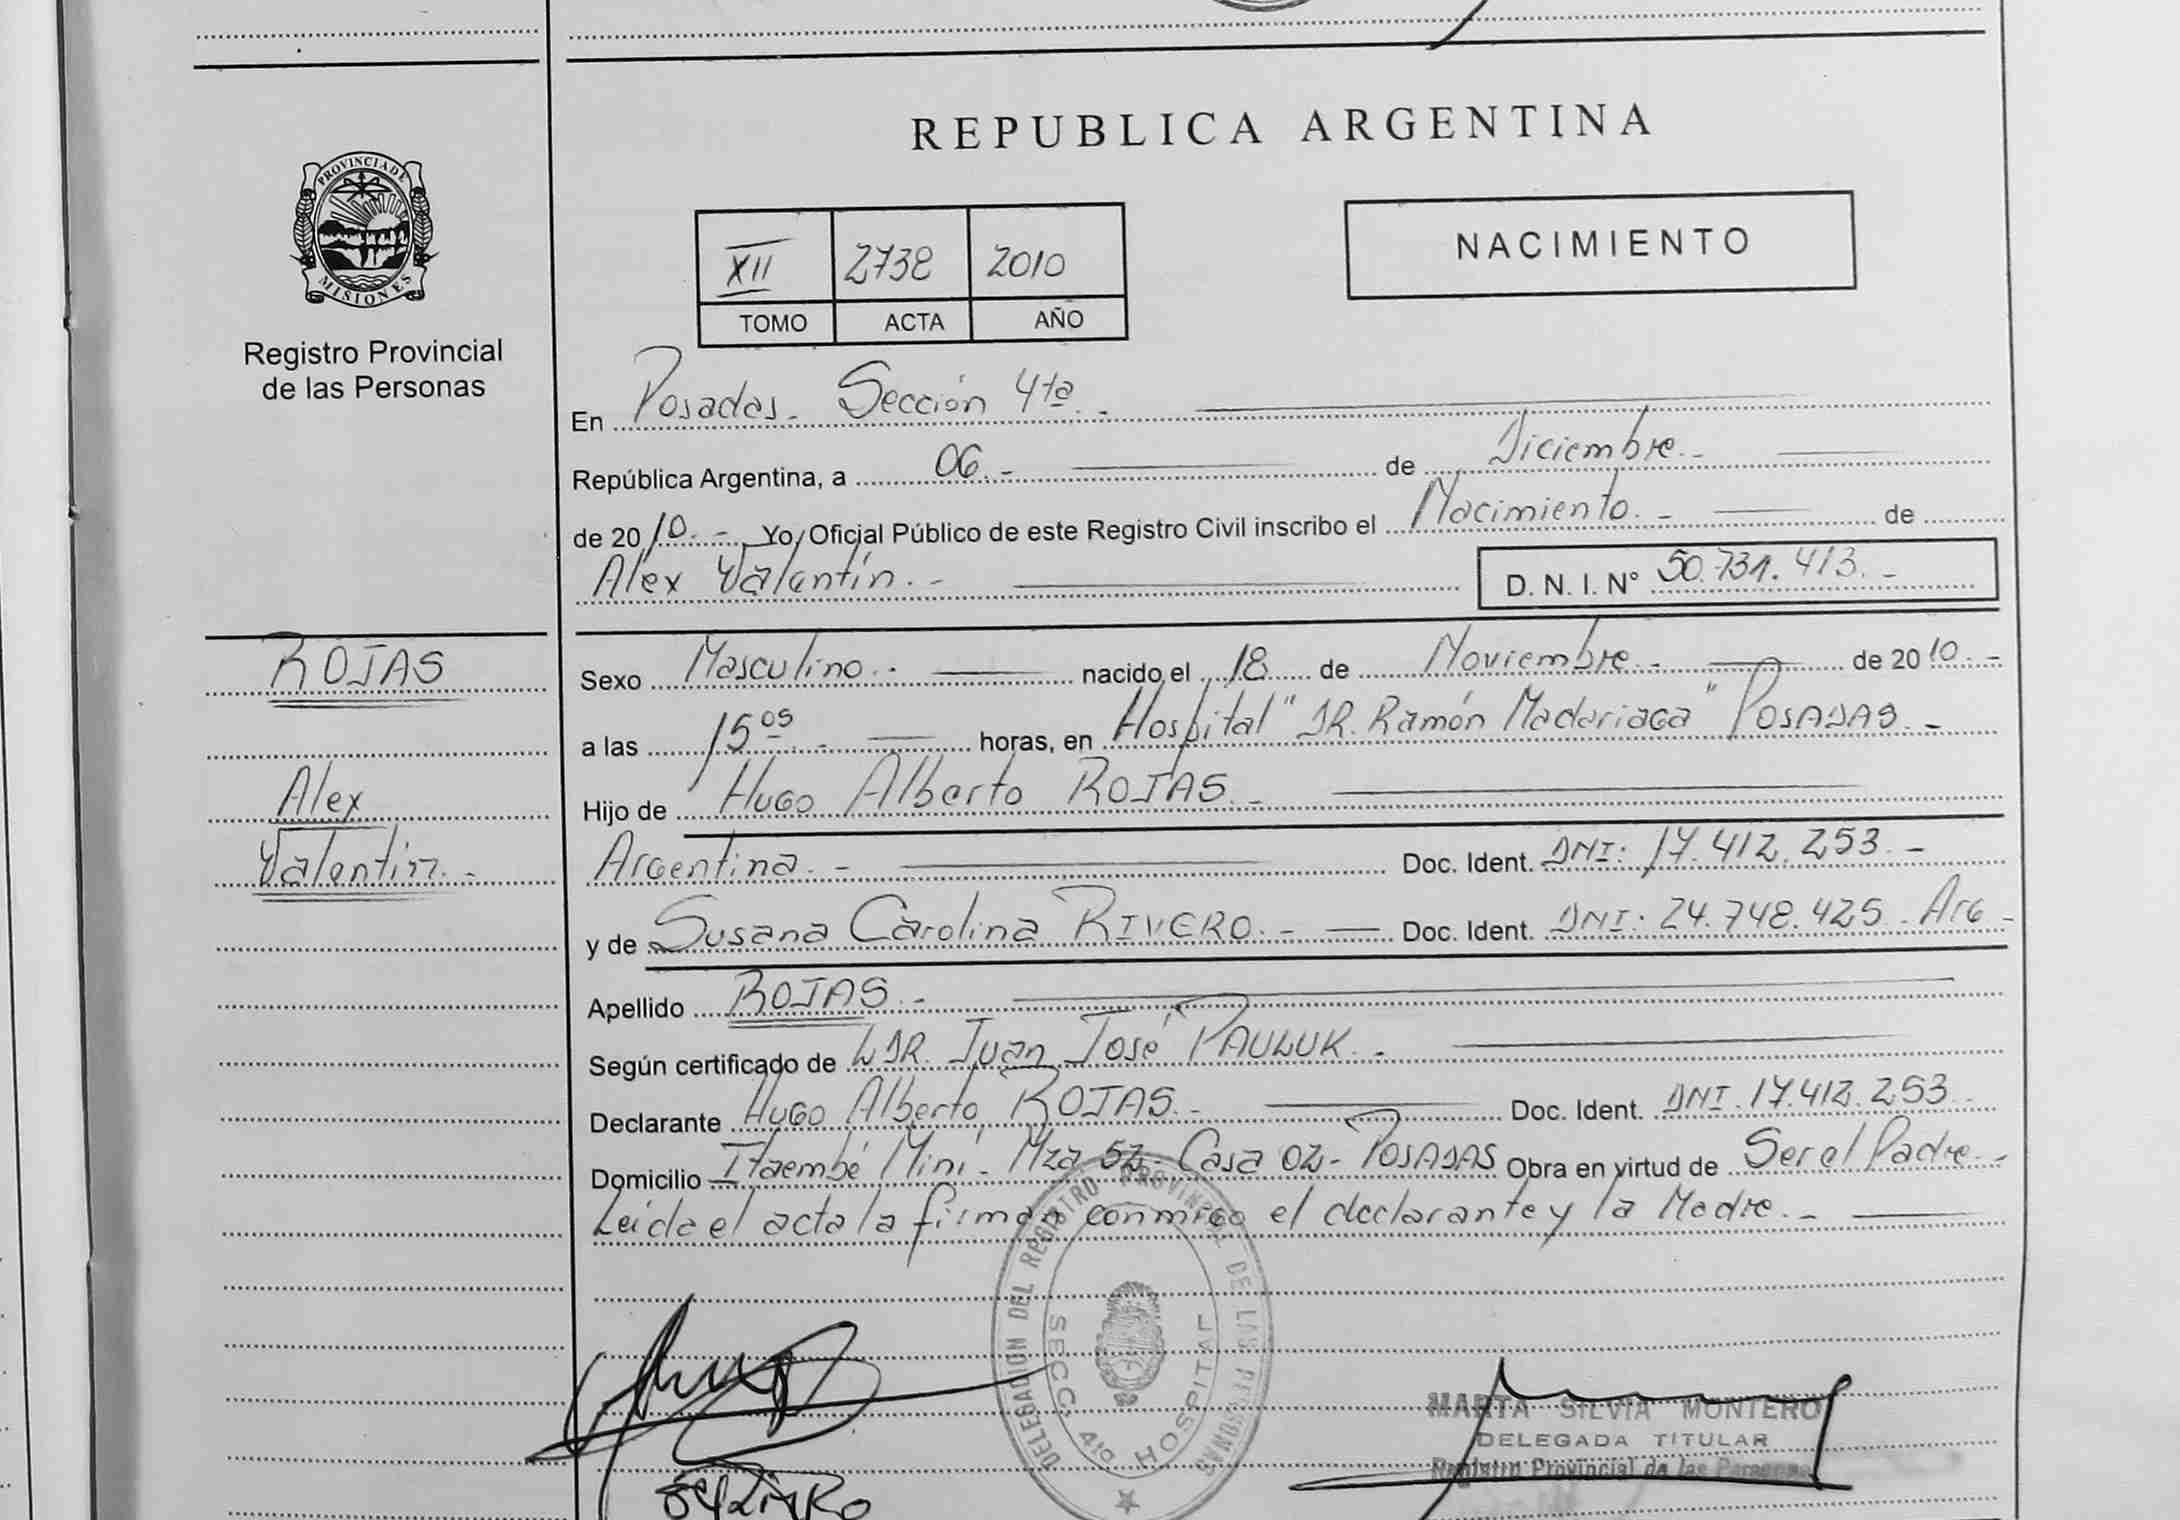 REPUBLICA ARGENTINA
PROVINCIA DE
MISIONES
Registro Provincial
de las Personas
XII 2738 2010
TOMO ACTA AÑO
NACIMIENTO
En Posadas. Sección 4ta.-
República Argentina, a 06.- de Diciembre.-
de 2010.- Yo, Oficial Público de este Registro Civil inscribo el Nacimiento.- de
Alex Valentín.- D. N. I. N° 50.731.413.-
ROJAS
Alex
Valentín.-
Sexo Masculino.- nacido el 18 de Noviembre.- de 2010.-
a las 15 05.- horas, en Hospital "DR. Ramón Madariaga" POSADAS.-
Hijo de Hugo Alberto ROJAS.-
Argentina.- Doc. Ident. DNI: 17.412.253.-
y de Susana Carolina RIVERO.- Doc. Ident. DNI: 24.748.425.-Arg-
Apellido ROJAS.-
Según certificado de DR. Juan José PAULUK.-
Declarante Hugo Alberto ROJAS.- Doc. Ident. DNI.17.412.253
Domicilio Itaembé Miní- Mza 52- Casa 02- POSADAS Obra en virtud de Ser el Padre.-
Leída el acta la firman conmigo el declarante y la Madre.-
DELEGACION DEL REGISTRO PROVINCIAL DE LAS PERSONAS
SECC. 4ta HOSPITAL
MARTA SILVIA MONTERO
DELEGADA TITULAR
Registro Provincial de las Personas